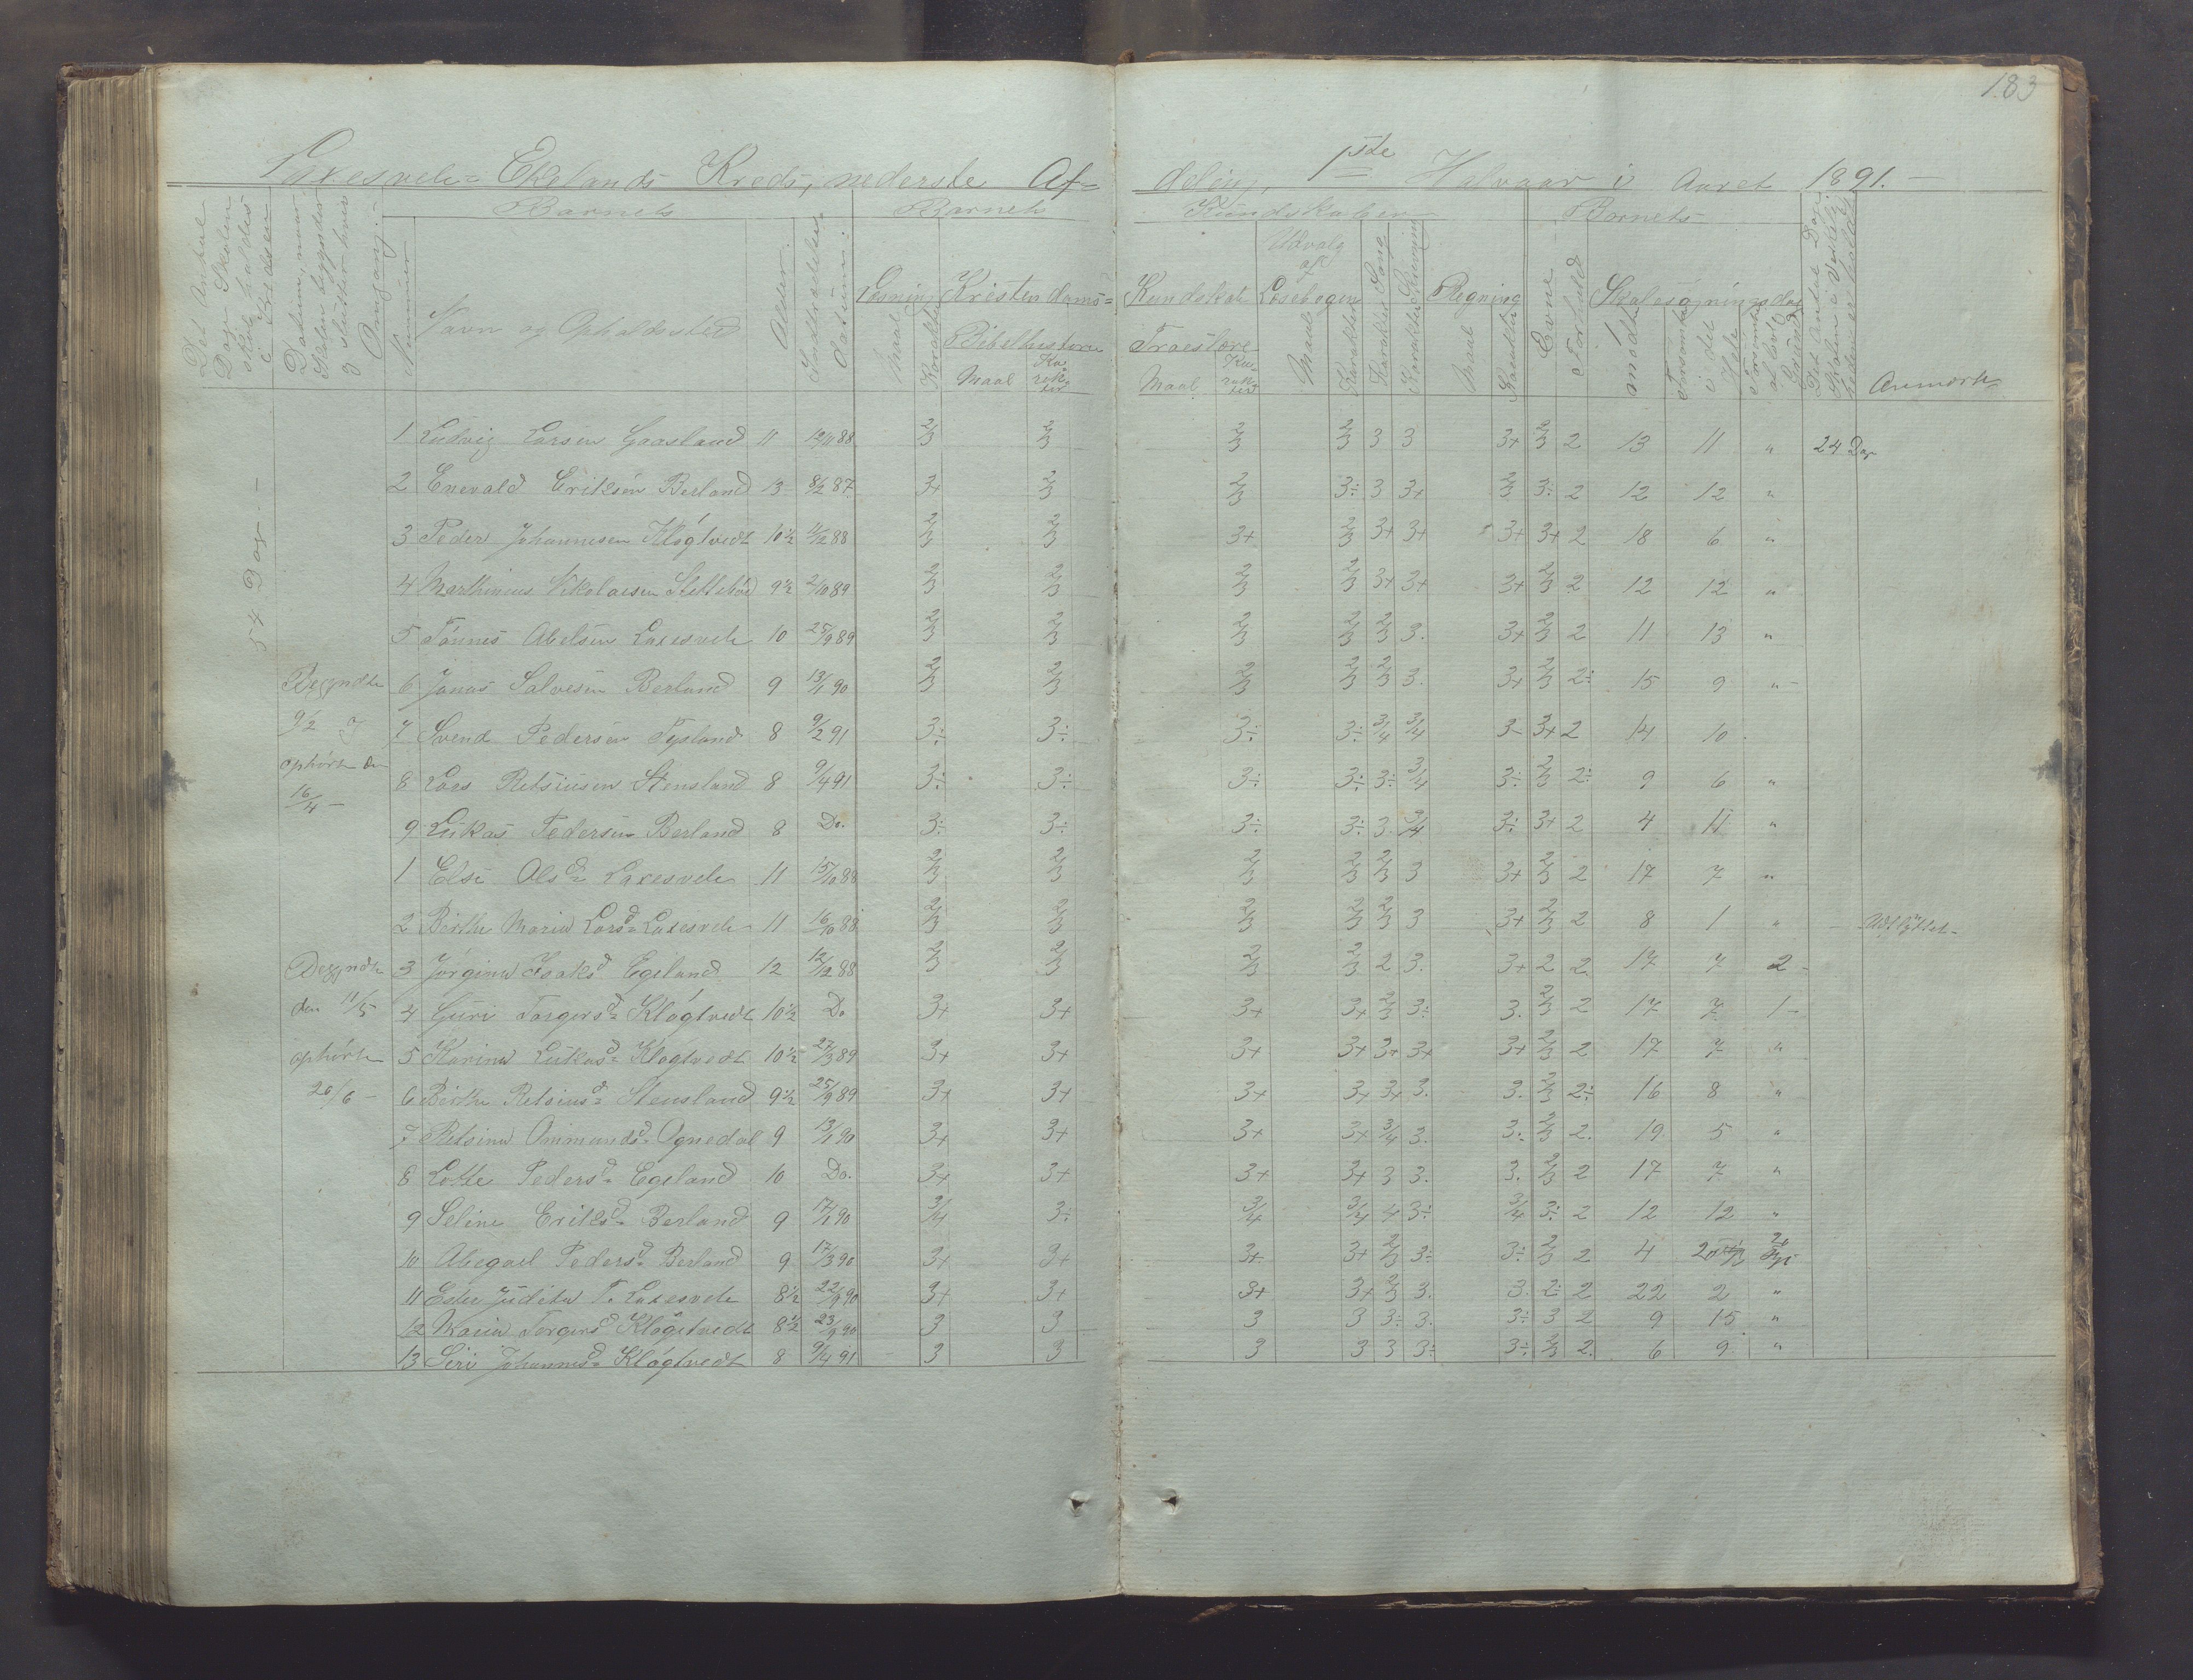 183
Laxesvele-Ekelands Kreds, nederste Afdeling, 1ste Halvaar i Aaret 1891.
Det Antal Dage Skolen skal holdes i Kredsen
Datum, naar Skolen begynder og slutter hver Omgang.
Nummer
Barnets
Navn og Opholdssted
Alder
Indtrædelses Datum
Barnets Kundskaber
Læsning
Maal
Karakter
Kristendoms-Kundskab
Bibelhistorie
Maal
Karakter
Troeslære
Maal
Karakter
Udvalg af Læsebogen
Maal
Karakter
Karakter Sang
Karakter Skrivning
Regning
Maal
Karakter
Barnets
Evne
Forhold
Skolesøgningsdage
mødte
Forsømte i det Hele
Det Antal Dage Skolen i Virkeligheden er holdt
Anmærk.
54 Dage
Begyndte 9/2 & ophørte den 16/4
Begyndte den 11/5 ophørte 26/6
1 Ludvig Larsen Gaasland 11 12/11 88 2/3 2/3 2/3 2/3 3 3 3+ 2/3 2 13 11 " 24 Dage
2 Enevald Eriksen Berland 13 8/2 87 3+ 2/3 2/3 3÷ 3 3+ 2/3 3÷ 2 12 12 "
3 Peder Johannesen Kløgtvedt 10½ 4/12 88 2/3 2/3 3+ 2/3 3+ 3+ 3+ 3+ 2 18 6 "
4 Marthinius Nikolaisen Slettebø 9½ 2/10 89 2/3 2/3 2/3 2/3 3+ 3+ 3+ 2/3 2 12 12 "
5 Tønnes Abelsen Laxesvele 10 25/9 89 2/3 2/3 2/3 2/3 2/3 3. 3+ 2/3 2 11 13 "
6 Jonas Salvesen Berland 9 13/1 90 2/3 2/3 2/3 2/3 2/3 3. 3+ 2/3 2÷ 15 9 "
7 Svend Pedersen Tysland 8 9/2 91 3÷ 3÷ 3÷ 3÷ 3/4 3/4 3- 3+ 2 14 10
8 Lars Retsiusen Stensland 8 9/4 91 3÷ 3÷ 3÷ 3÷ 3÷ 3/4 3÷ 2/3 2÷ 9 6 "
9 Lukas Pedersen Berland 8 Do. 3÷ 3÷ 3÷ 3÷ 3 3/4 3÷ 3+ 2 4 11 "
1 Else Olsd. Laxesvele 11 15/10 88 2/3 2/3 2/3 2/3 2/3 3 3+ 2/3 2 17 7 "
2 Berthe Maria Larsd. Laxesvele 11 16/10 88 2/3 2/3 2/3 2/3 2/3 3 3+ 2/3 2 8 1 " Udflyttet
3 Jørgina Isaksd. Egeland 12 12/12 88 2/3 2/3 2/3 2/3 2 3. 3+ 2 2 17 7 2
4 Guri Torgersd. Kløgtvedt 10½ Do 3+ 3+ 3+ 3+ 2/3 3÷ 3. 2/3 2 17 7 1
5 Karina Lukasd. Kløgtvedt 10½ 27/3 89 3+ 3+ 3+ 3+ 3+ 3+ 3+ 2/3 2 17 7 "
6 Berthe Retsiusd. Stensland 9½ 25/9 89 3+ 3+ 3+ 3+ 3+ 3. 3. 2/3 2÷ 16 8 "
7 Retsina Ommundsd. Ognedal 9 13/1 90 3+ 3+ 3+ 3+ 3/4 3. 3. 2/3 2. 19 5 "
8 Lotte Pedersd. Egeland 10 Do. 3+ 3+ 3+ 3+ 3 3. 3. 2/3 2 17 7 "
9 Seline Eriksd. Berland 9 17/1 90 3/4 3÷ 3/4 3/4 4 3÷ 3/4 3÷ 2 12 12 "
10 Abegael Pedersd. Berland 9 17/3 90 3+ 3+ 3+ 3+ 2/3 3÷ 3÷ 2/3 2 4 20
11 Ester Judita T. Laxesvele 8½ 22/9 90 3+ 3+ 3+ 3+ 2/3 3. 3. 2÷ 2 22 2 "
12 Maria Torgersd. Kløgtvedt 8½ 23/9 90 3 3 3 3 3÷ 3. 3÷ 3 2 9 15 "
13 Siri Johannesd. Kløgtvedt 8 9/4 91 3 3 3 3 3 3÷ 3÷ 2/3 2. 6 9 "